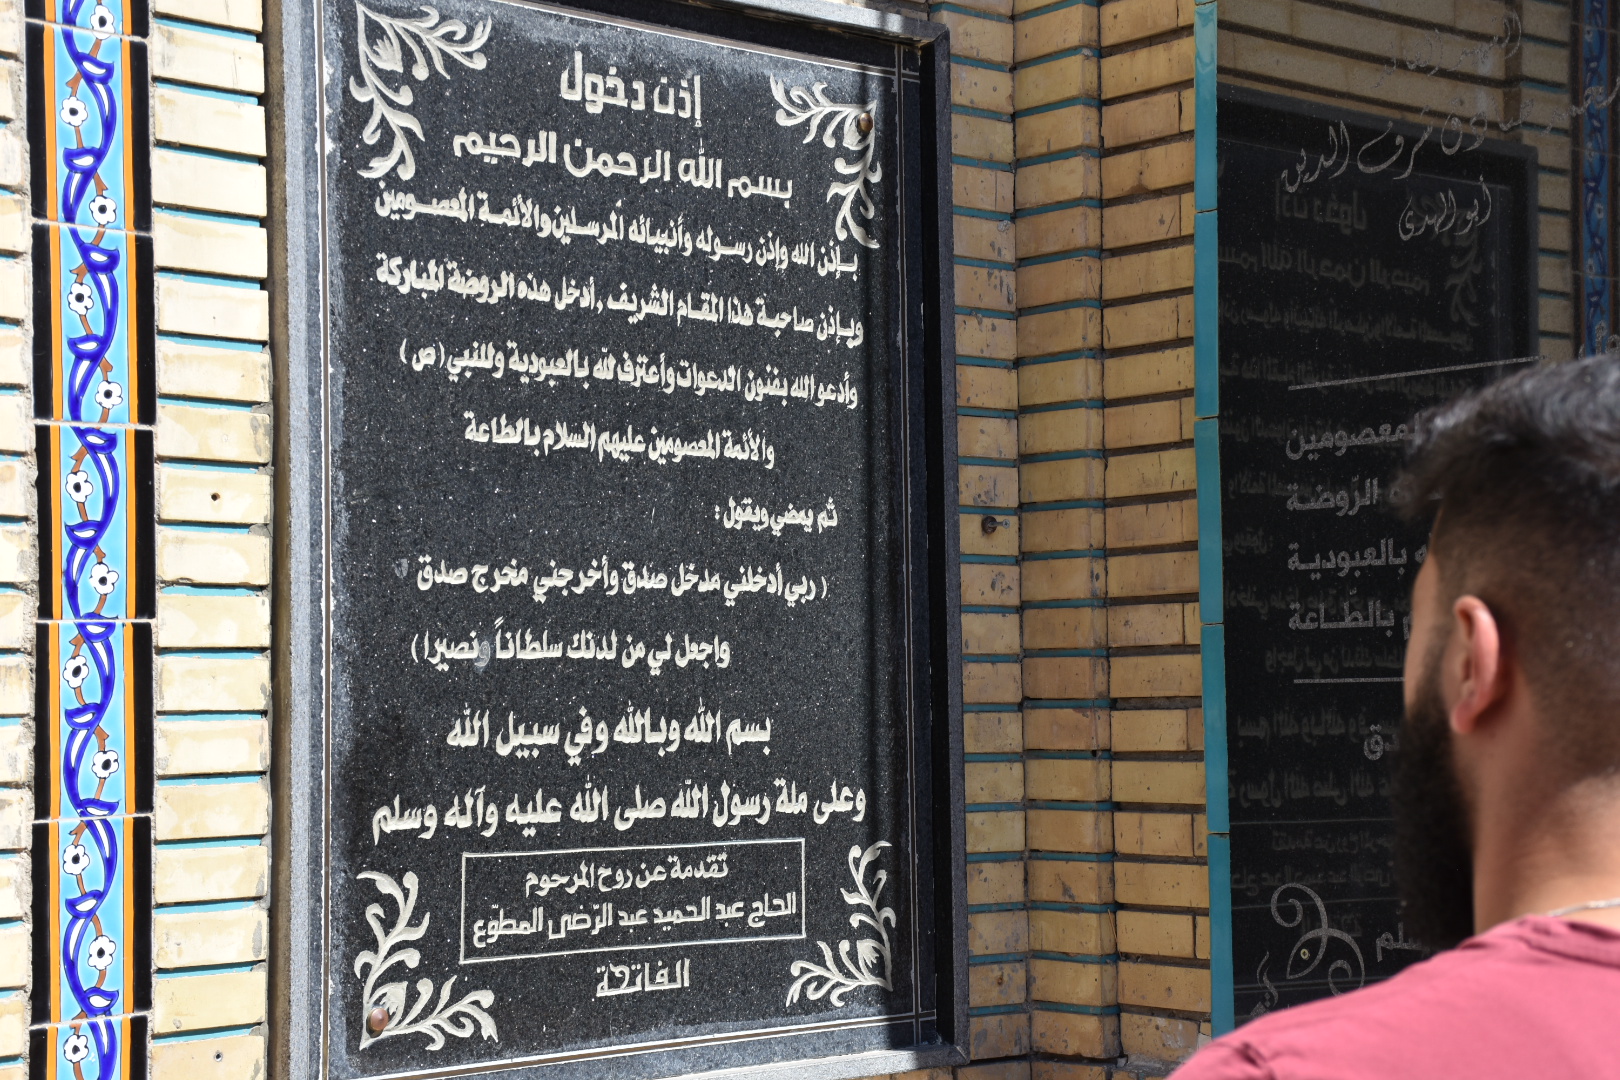 إذن دخول
بسم الله الرحمن الرحيم
بإذن الله وإذن رسوله وأنبيائه المرسلين والأئمة المعصومين
وبإذن صاحبة هذا المقام الشريف , أدخل هذه الروضة المباركة
وأدعو الله بفنون الدعوات وأعترف لله بالعبودية وللنبي (ص)
والأئمة المعصومين عليهم السلام بالطاعة
ثم يمضي ويقول :
( ربي أدخلني مدخل صدق وأخرجني مخرج صدق
واجعل لي من لدنك سلطاناً ونصيرا )
بسم الله وبالله وفي سبيل الله
وعلى ملة رسول الله صلى الله عليه وآله وسلم
تقدمة عن روح المرحوم
الحاج عبد الحميد عبد الرّضى المطوّع
الفاتحة
شرف الدين
أبو الهدى
لمعصومين
الرّوضة
بالعبودية
بالطّاعة